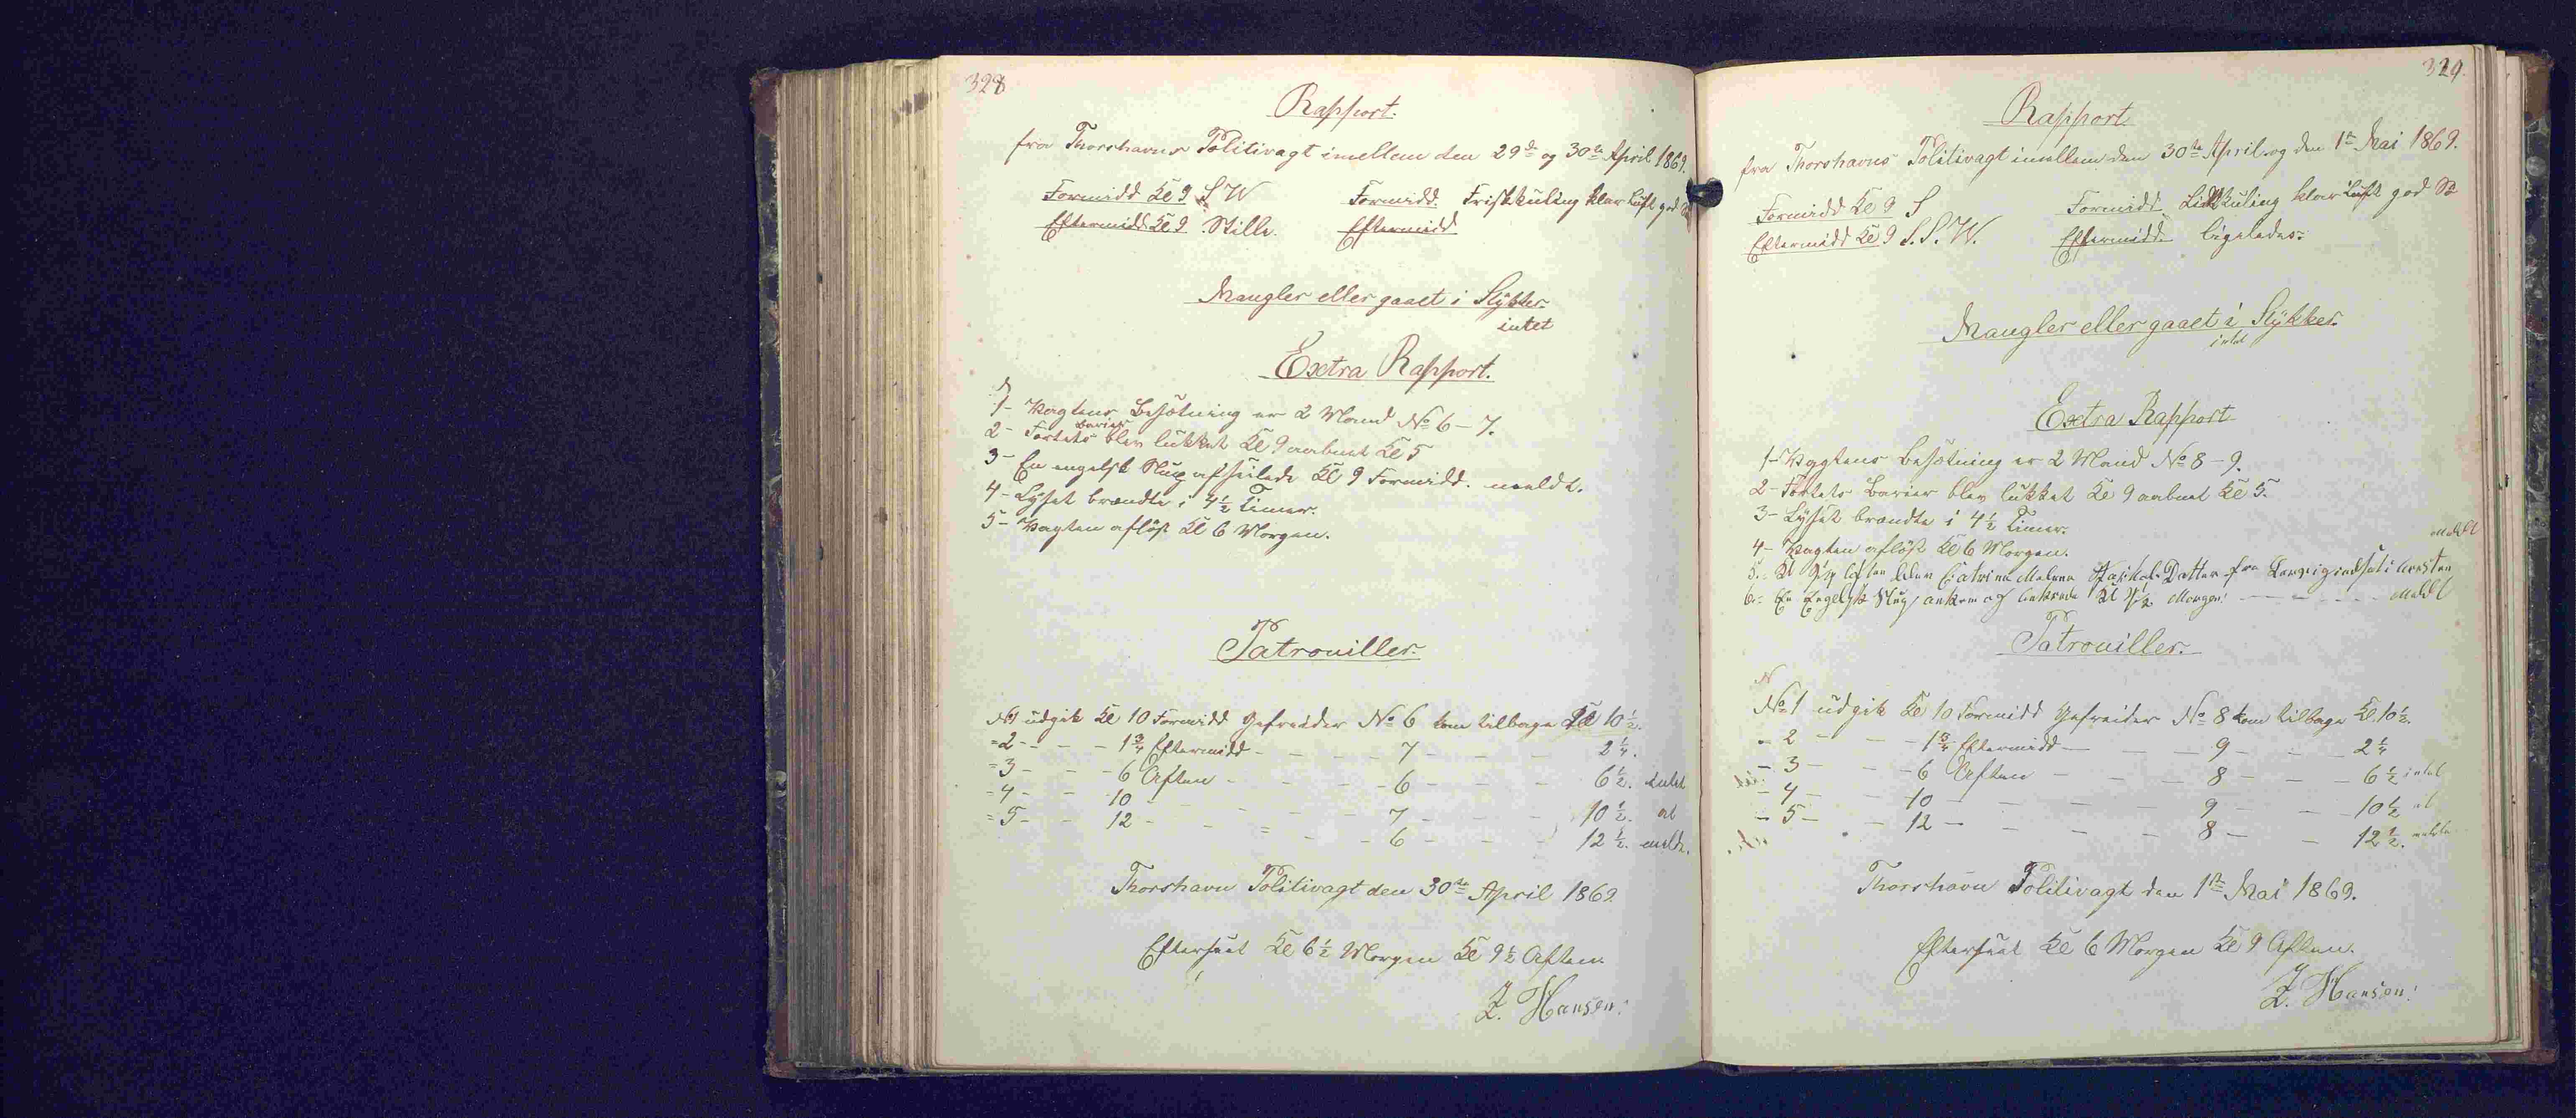 328
Rapport.
fra Thorshavns Politivagt imellem den 29de og 30te April 1869.
Formidd Kl 9 S W Formidd. Friskkuling klar Luft god
Eftermidd Kl 9 Stille. Eftermidd
Mangler eller gaaet i Stÿkker.
intet
Extra Rapport.
1- Vagtens Besötning er 2 Mand No 6-7.
2- Fortets Barier blev lukket Kl 9 aabnet Kl 5
3- En engelsk Slup afseilede Kl 9 Formidd. meldt.
4- Lÿset brændte i 4½ Timer.
5- Vagten aflöst Kl 6 Morgen.
Patrouiller.
No1 udgik Kl 10 Formidd Gefreider No 6 kom tilbage Kl 10½.
=2 - - - 1¾ Eftermidd - - - 7 - - - 2¼.
=3 - - - 6 Aften - - - 6 - - - 6½. intet
-4 - - 10 - - - 7 - - - 10½. at
=5 - - 12 - - = - - 6 - - - 12½. melde.
Thorshavn Politivagt den 30te April 1869.
Efterseet Kl 6½ Morgen Kl 9½ Aften.
Z. Hansen.
329.
Rapport
fra Thorshavns Politivagt imellem den 30te April og den 1te Mai 1869.
Formidd Kl 9 S Formidd Kuling klar Luft god Sö
Eftermidd Kl 9 S.S.W. Eftermidd ligeledes.
Mangler eller gaaet i Stÿkker.
intet
Extra Rapport
1- Vagtens Besötning er 2 Mand No 8-9.
2- Fortets Barier blev lukket Kl 9 aabnet Kl 5.
3- Lÿset brændte i 4½ Timer.
4- Vagten aflöst Kl 6 Morgen. Meldt
5.- Kl Aften blev Catrina Malena Datter fra indsat i Aresten
6.- En Engelsk Slup ankom og ankrede Kl Morgen. - - - - Meldt
Patrouiller.
No 1 udgik Kl 10 Formidd Gefreider No 8 kom tilbage Kl. 10½.
- 2 - - - 1¾ Eftermidd - - - 9 - - 2¼
- 3 - - - 6 Aften - - - 8 - - - 6½ intet
- 4 - - 10 - - - - 9 - - 10½ at
- 5 - - 12 - - - - 8 - - 12½. melde
Thorshavn Politivagt den 1te Mai 1869.
Efterseet Kl 6 Morgen Kl 9 Aften.
Z. Hansen.